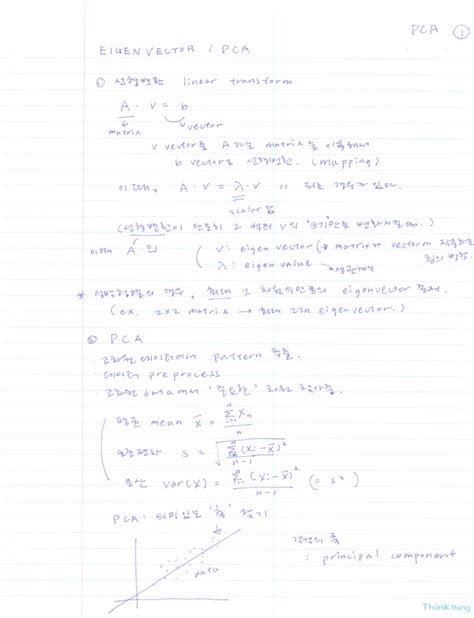 PCA ①
EIGENVECTOR / PCA
① 선형변환 linear transform
A · v = b
matrix vector
v vector를 A라는 matrix를 이용해서
b vector로 선형변환. (mapping)
이 때, A · v = λ · v 이 되는 경우가 있다.
scalar 값
(선형변환이 단순히 그 벡터 v의 '크기'만을 변화시킬 때.)
이때 A의 v: eigen vector (matrix가 vector에 작용하는
힘의 방향.
λ: eigen value
* 정방행렬의 경우, 최대 그 차원의 만큼의 eigenvector 존재
(ex. 2x2 matrix → 최대 2개 eigenvector.)
② PCA
· 고차원 데이터에서 pattern 추출.
· 데이터 preprocess
· 고차원 data에서 '중요한' 차원 찾아줌.
평균 mean x̄ = Σ Xn / n
표준편차 s = √( Σ (Xi - x̄)² / n-1 )
분산 var(X) = Σ (Xi - x̄)² / n-1 (= s²)
PCA: 의미있는 '축' 찾기
data
: principal component
Think thing